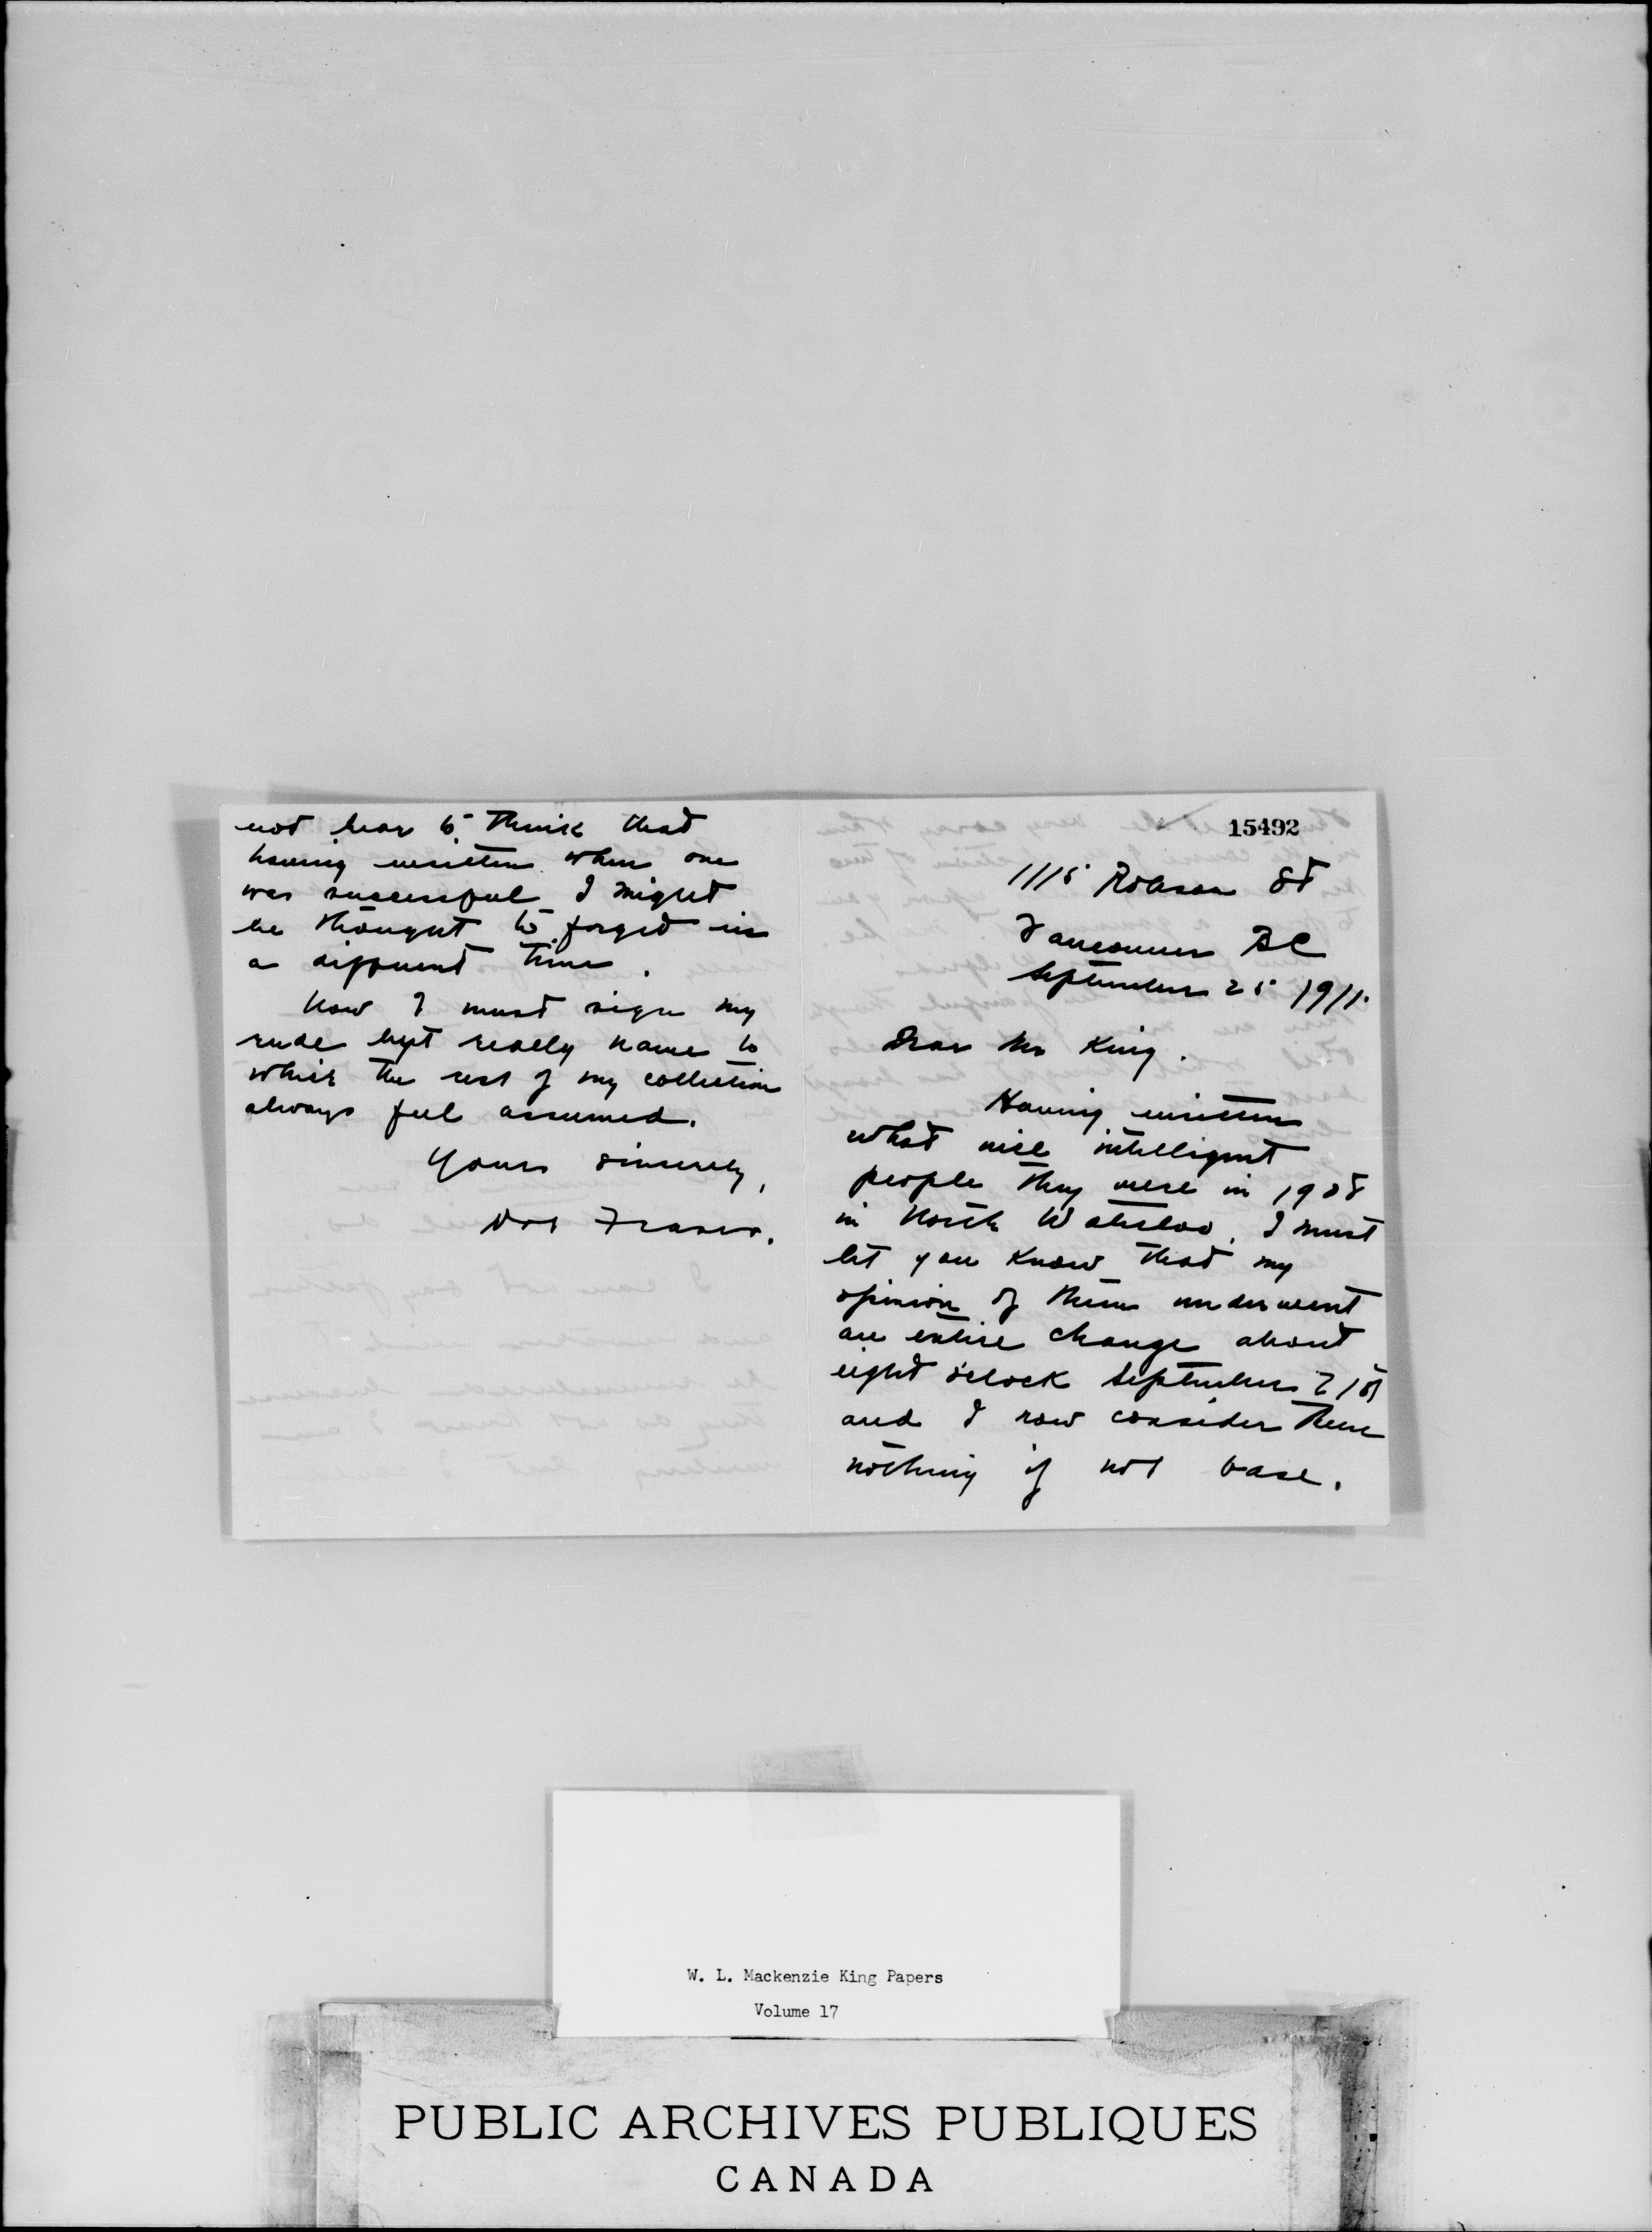 15492
1115 Robson St
Vancouver BC
September 25 1911.
Dear Mr King.
Having written
what nice intelligent
people they were in 1908
in North Waterloo, I must
let you know that my
opinion of them underwent
an entire change about
eight o'clock September 21st
and I now consider them
nothing if not base.
not bear to think that
having written when one
was successful I might
be thought to forget in
a different time.
Now I must sign my
rude but really name to
which the rest of my collection
always feel assumed.
Yours sincerely,
Dot Fraser.
W. L. Mackenzie King Papers
Volume 17
PUBLIC ARCHIVES PUBLIQUES
CANADA